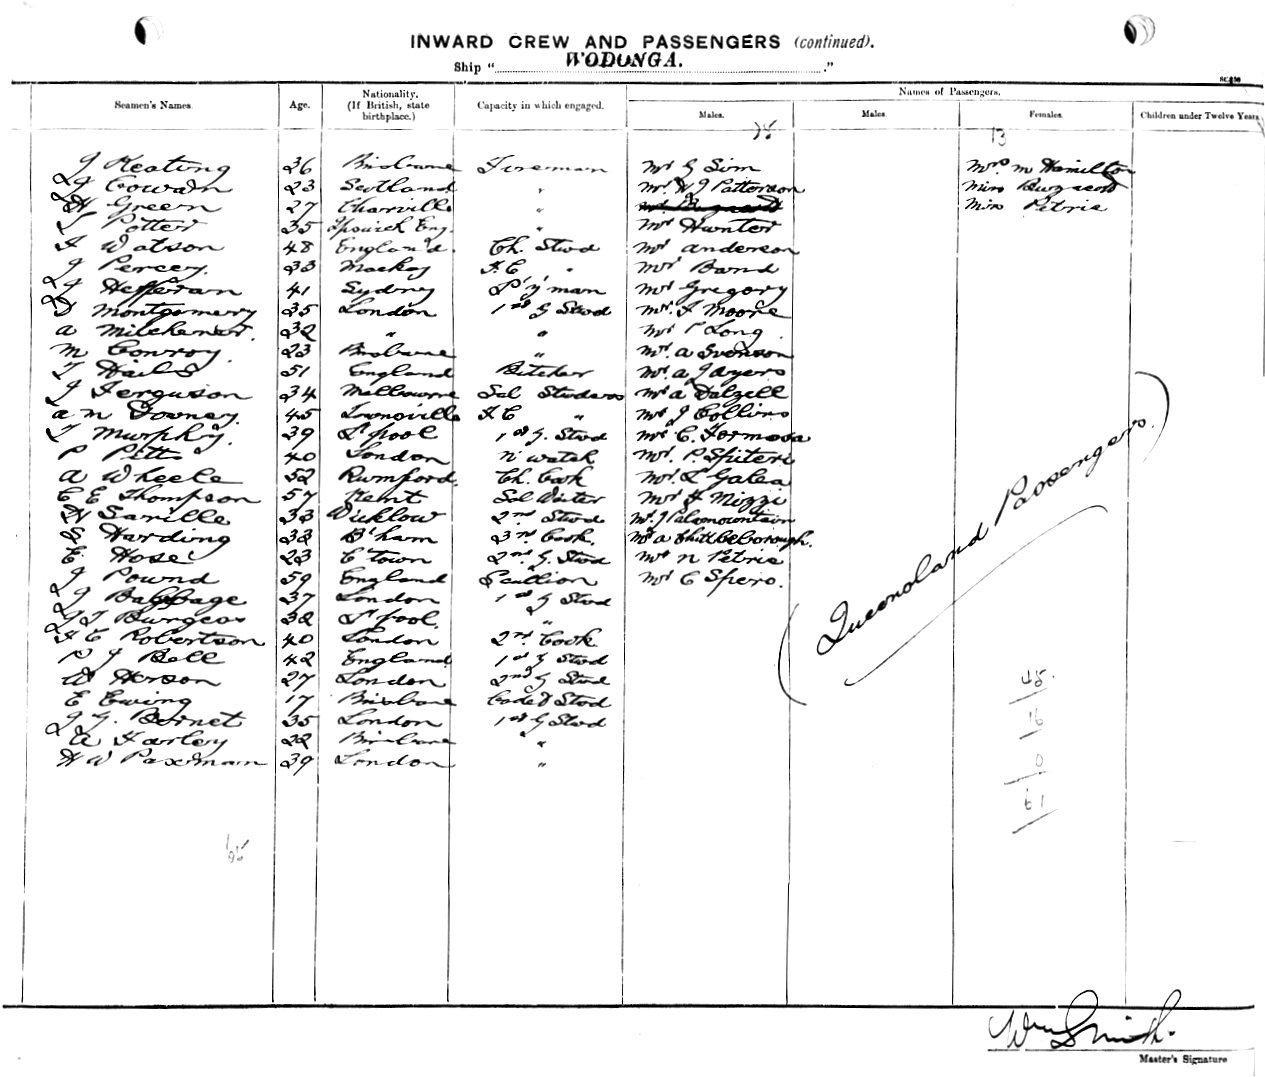 INWARD CREW AND PASSENGERS (continued).
Ship "WODONGA."
Seamen's Names. Age. Nationality. (If British, state birthplace.) Capacity in which engaged. Names of Passengers.
Males. Males. Females. Children under Twelve Years.
13
J Keating 26 Brisbane Fireman Mr G Sim Mrs M Hamilton
J Cowan 23 Scotland " Mr W J Patterson Miss
H Green 27 Charville " Miss Petrie
J Potter 35 Ipswich Eng. " Mr Hunter
F Watson 48 England Ch. Stwd Mr Anderson
J Percey. 33 Mackay F.C " Mr Band
J Heffernan 41 Sydney P'y'man Mr Gregory
D Montgomery 35 London 1st G Stwd Mr F Moore
A Milchener. 32 " " Mr P Long
M Conroy. 23 Brisbane " Mr A Svenson
T Hails 51 England Butcher Mr A Jayers
J Ferguson 34 Melbourne Sal Stwdess Mr A Dalzell
A N Downey. 45 Townsville F.C " Mr J Collins
T Murphy. 39 L'pool 1st G. Stwd Mr C. Formosa
P Pitts 40 London N watch Mr. P. Spiteri
A Wheele 52 Rumford. Ch. Cook Mr. L Galea
C E Thompson 57 Kent Sal Waiter Mr F Mizzi
H Saville 33 Wicklow 2nd Stwd Mr. J Palamountain
S Harding 32 B'ham 3rd Cook. Mr A Chittleborough.
E Hose 23 C'town 2nd G. Stwd Mr N Petrie
J Pound 59 England Scullion Mr C Spero.
J Babbage 37 London 1st G Stwd
J T Burgess 32 L'pool. "
F C Robertson 40 London 2nd Cook
P J Bell 42 England 1st G Stwd
W Herson 27 London 2nd G Stwd
E Ewing 17 Brisbane Cadet Stwd
J G. Bernet 35 London 1st G Stwd
A Farley 22 Brisbane "
H W Paxman 39 London "
(Queensland Passengers.)
45.
16
0
61
Wm Smith.
Master's Signature